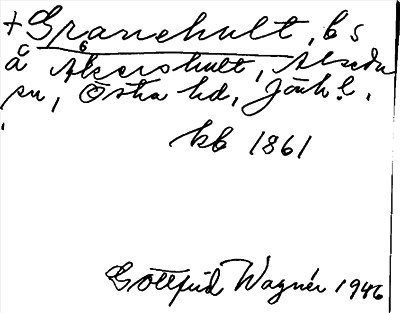 + Granehult, b s
å Åkershult, Alseda
sn, Östra hd, Jönk. l.
kb 1861
Gottfrid Wagnér 1946